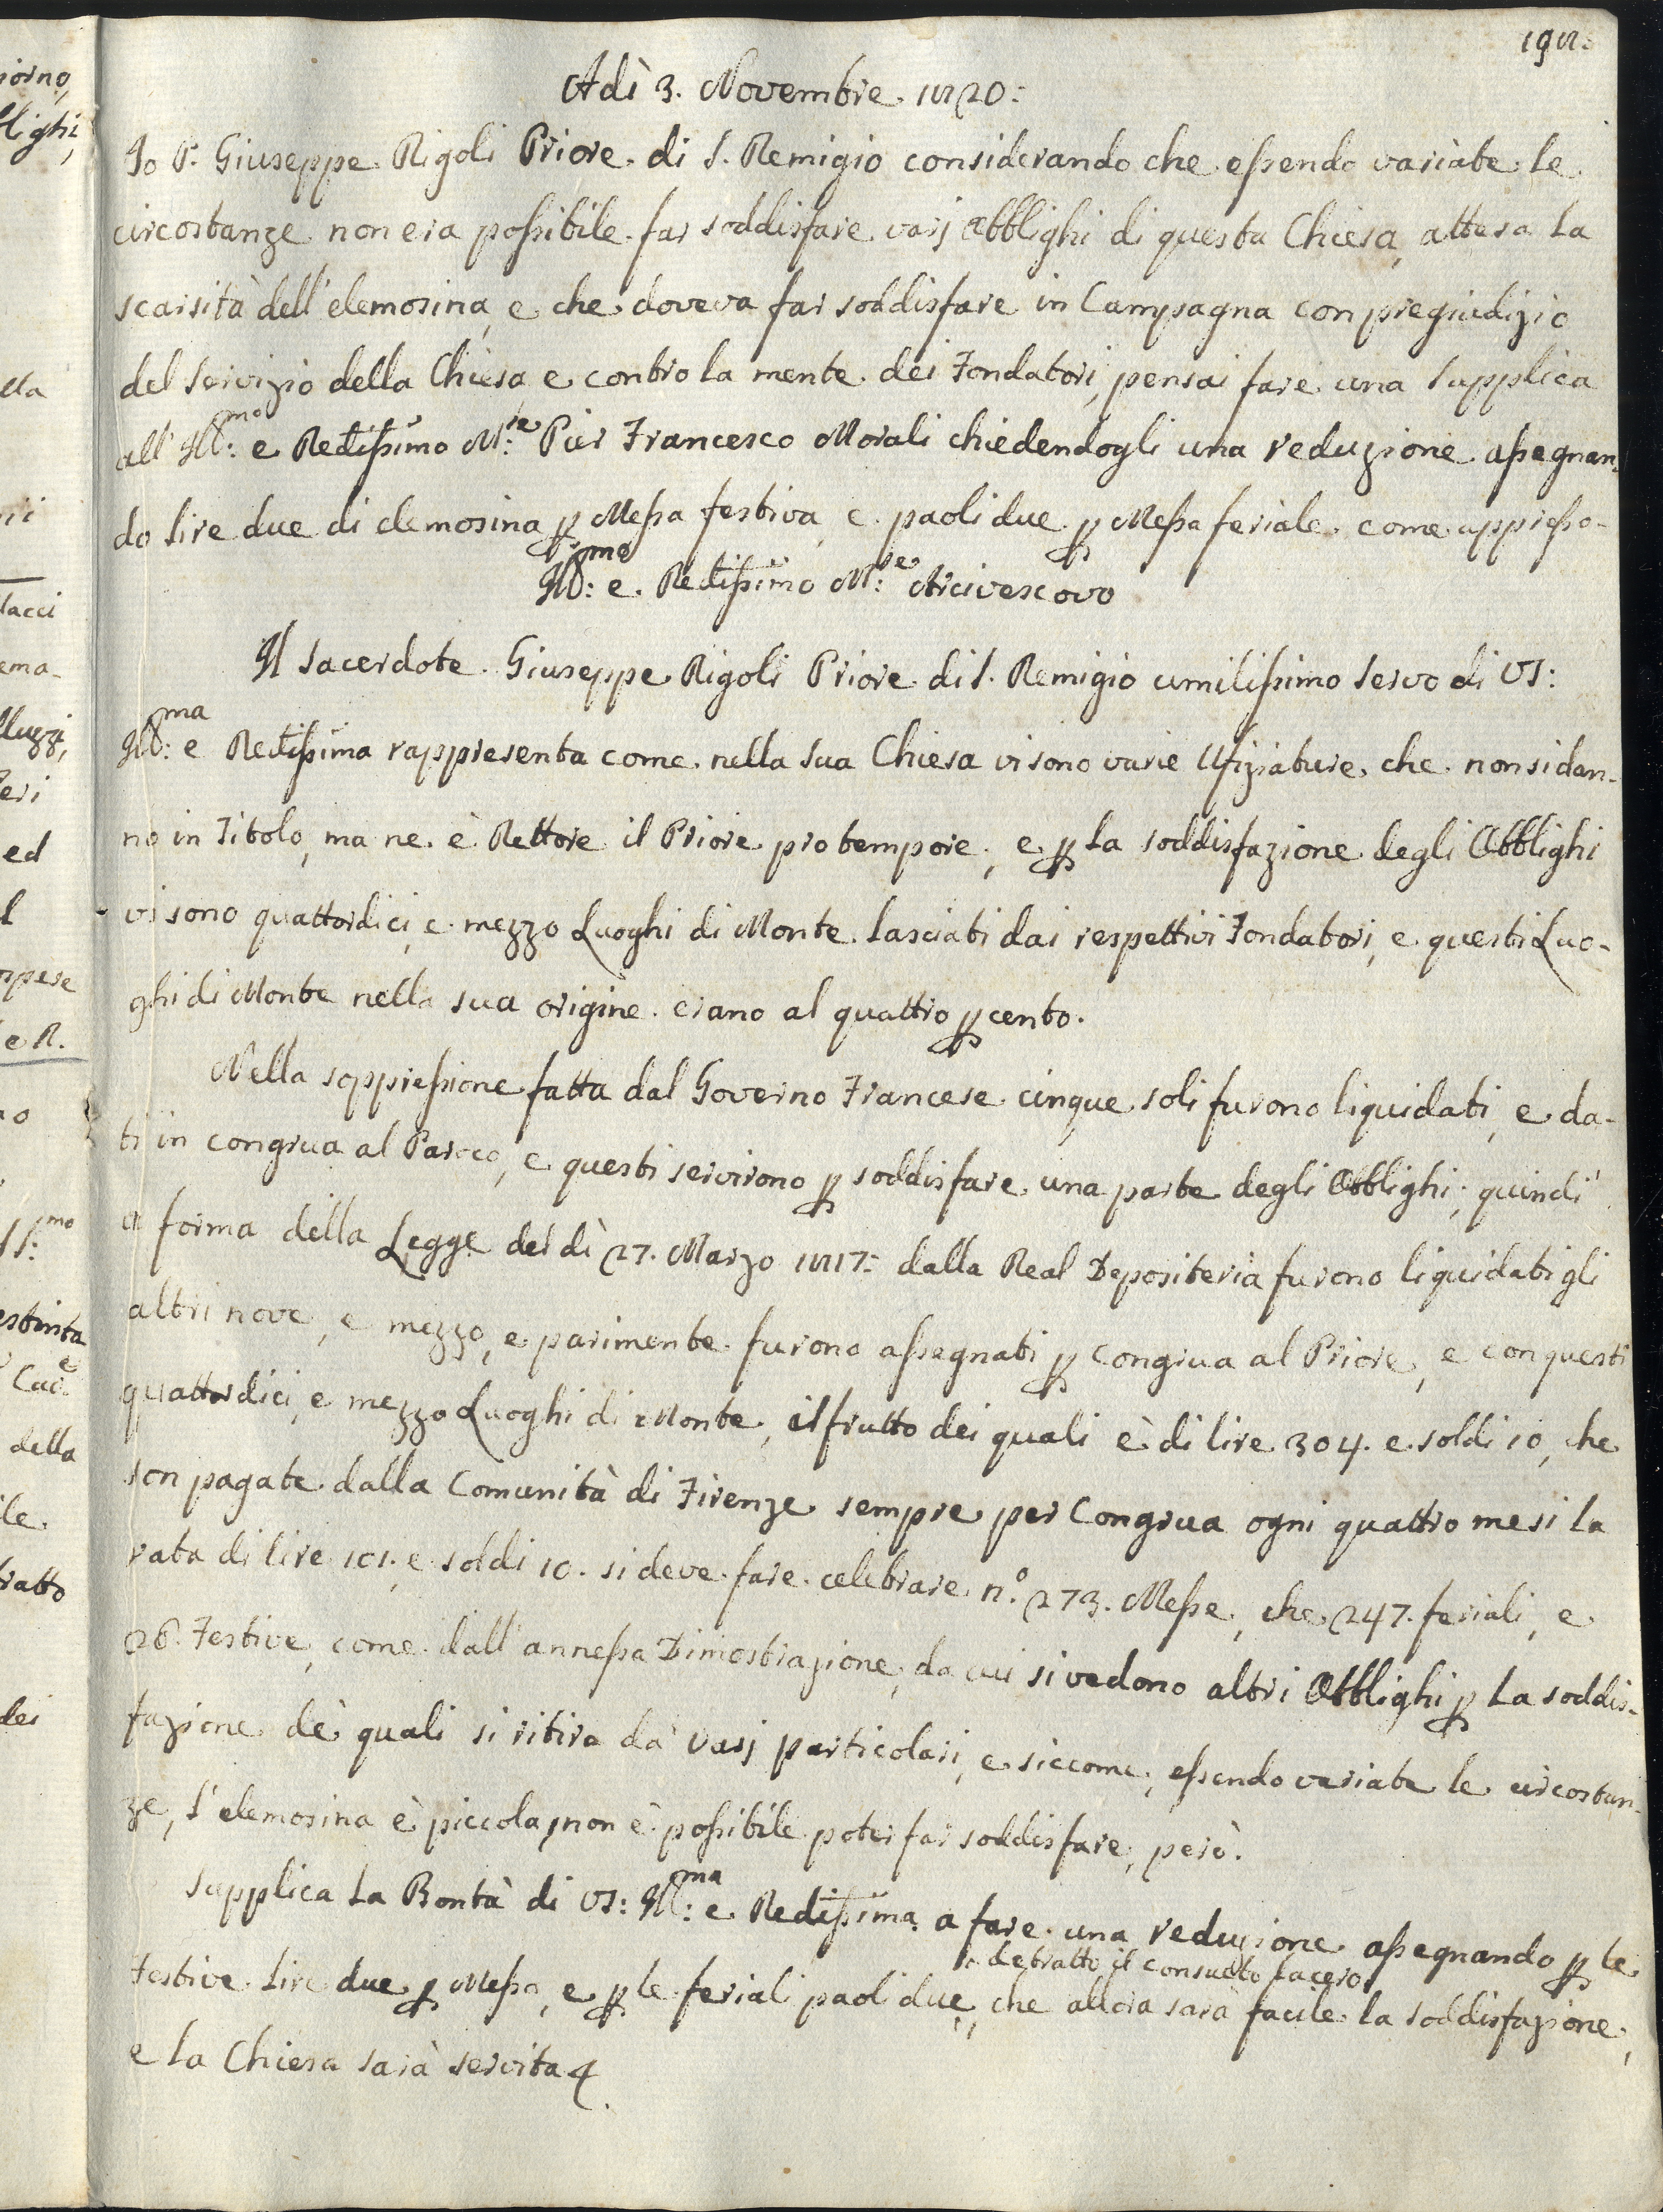 198.
Adì 3. Novembre 1820:
Io P. Giuseppe Rigoli Priore di S. Remigio considerando che essendo variate le
circostanze non era possibile far soddisfare varj Obblighi di questa Chiesa, attesa la
scarsità dell'elemosina, e che doveva far soddisfare in Campagna con pregiudizio
del Servizio della Chiesa e contro la mente dei Fondatori, pensai fare una Supplica
all' Ill:mo e Redissimo M:re Pier Francesco Morali chiedendogli una reduzione assegnan-
do lire due di elemosina p Messa festiva, e paoli due p Messa feriale come appresso-
Ill:mo e Redissimo M:re Arcivescovo
Il Sacerdote Giuseppe Rigoli Priore di S. Remigio umilissimo servo di VS:
Ill:ma e Redissima rappresenta come nella sua Chiesa vi sono varie Ufiziature, che non si dan-
no in Titolo, ma ne è Rettore il Priore pro tempore, e p la soddisfazione degli Obblighi
vi sono quattordici, e mezzo Luoghi di Monte lasciati dai respettivi Fondatori, e questi Luo-
ghi di Monte nella sua origine erano al quattro p cento.
Nella soppressione fatta dal Governo Francese cinque soli furono liquidati, e da-
ti in congrua al Paroco, e questi servirono p soddisfare una parte degli Obblighi; quindi
a forma della Legge dei dì 27. Marzo 1817: dalla Real Depositeria furono liquidati gli
altri nove, e mezzo, e parimente furono assegnati p congrua al Priore, e con questi
quattordici, e mezzo Luoghi di Monte, il frutto dei quali è di lire 304. e soldi 10, che
son pagate dalla Comunità di Firenze sempre per Congrua ogni quattro mesi la
rata di lire 101. e soldi 10. si deve fare celebrare n.º 273. Messe, che 247. feriali, e
26. Festive, come dall'annessa Dimostrazione, da cui si vedono altri Obblighi p la soddis-
fazione de' quali si ritira da varj particolari, e siccome, essendo variate le circostan-
ze, l'elemosina è piccola, non è possibile poter far soddisfare, però.
Supplica la Bontà di VS: Ill:ma e Redissima a fare una reduzione assegnando p le
detratto il consueto sacero
Festive lire due p Messa, e p le feriali paoli due, che allora sarà facile la soddisfazione,
e la Chiesa sarà servita